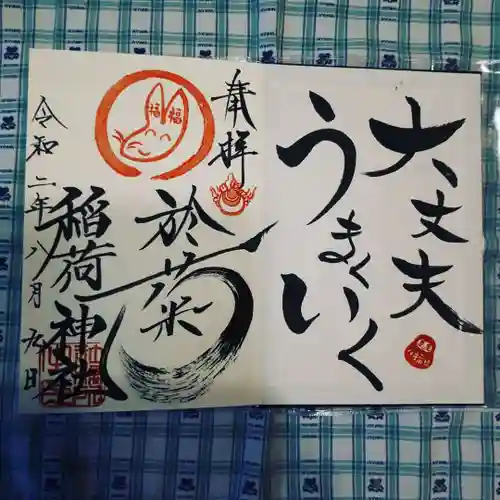 大丈夫
うまくいく
奉拝
於菊
稲荷神社
令和二年八月
福福